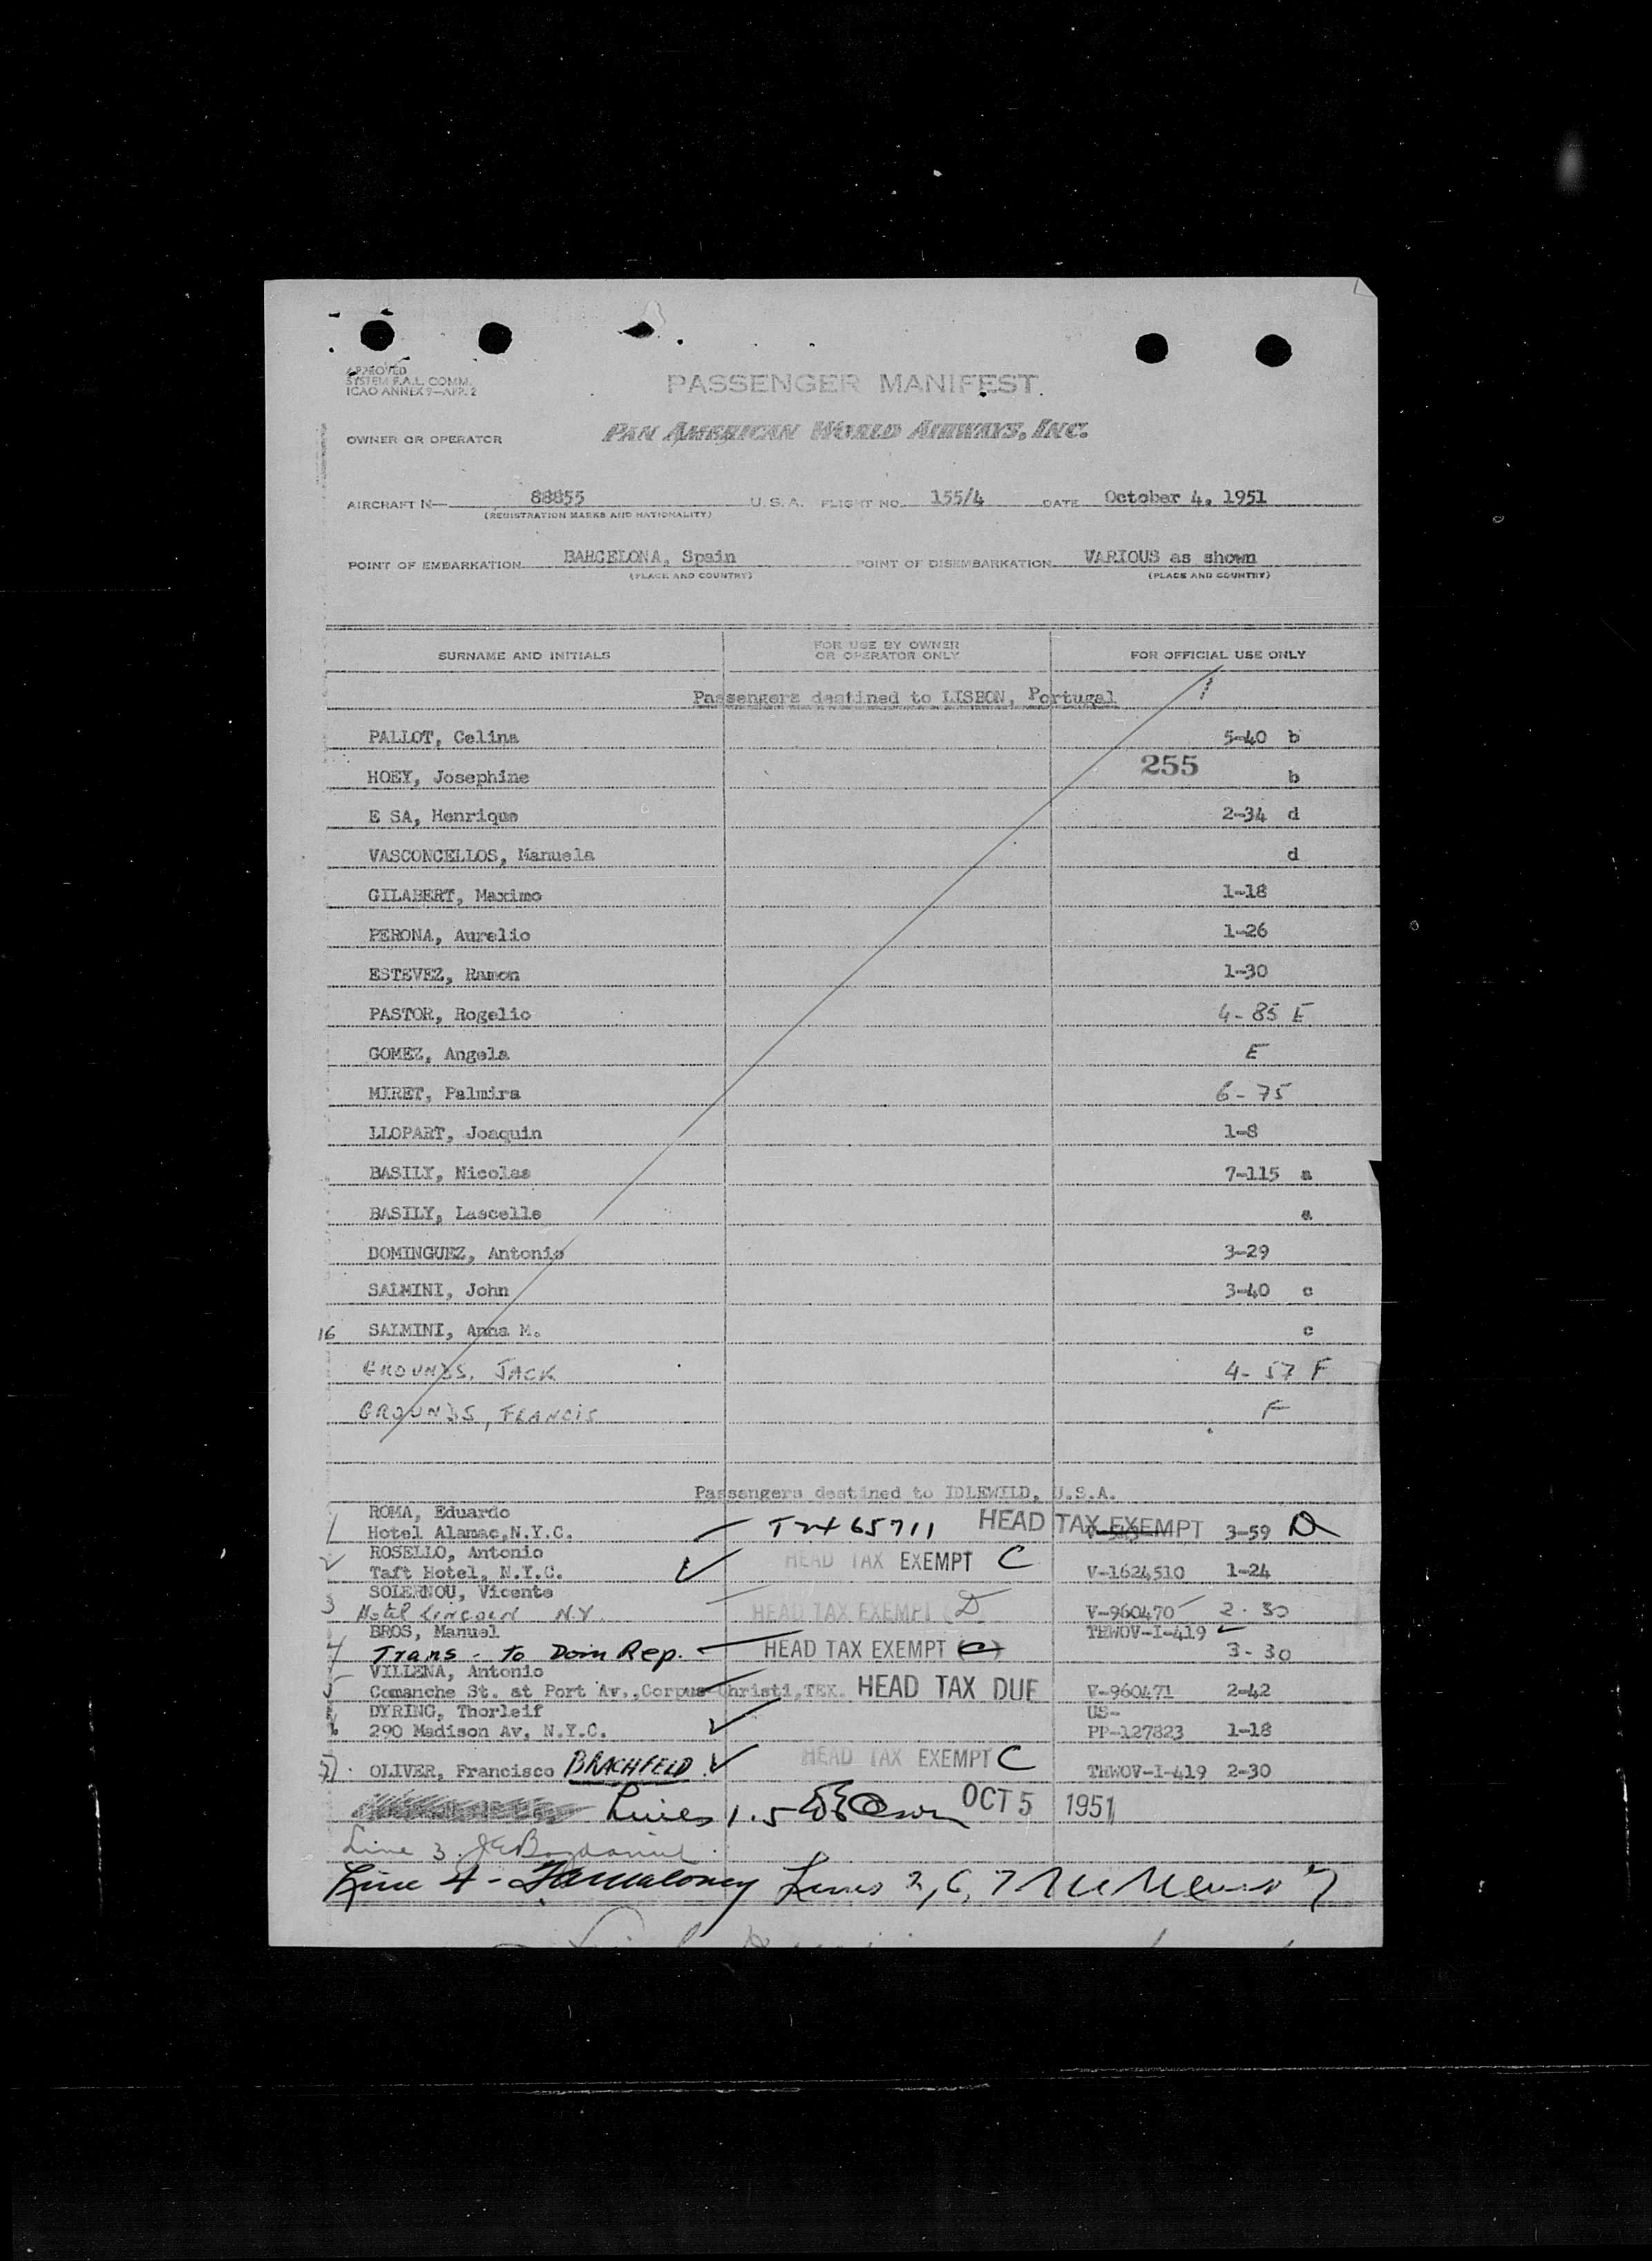 APPROVED
SYSTEM F.A.L. COMM.
ICAO ANNEX 9—APP. 2
PASSENGER MANIFEST
OWNER OR OPERATOR PAN AMERICAN WORLD AIRWAYS, INC.
AIRCRAFT N— 88855 U.S.A. FLIGHT NO. 155/4 DATE October 4, 1951
(REGISTRATION MARKS AND NATIONALITY)
POINT OF EMBARKATION BARCELONA, Spain POINT OF DISEMBARKATION VARIOUS as shown
(PLACE AND COUNTRY) (PLACE AND COUNTRY)
SURNAME AND INITIALS FOR USE BY OWNER OR OPERATOR ONLY FOR OFFICIAL USE ONLY
Passengers destined to LISBON, Portugal 1
PALLOT, Celina 5-40 b
255
HOEY, Josephine b
E SA, Henrique 2-34 d
VASCONCELLOS, Manuela d
GILABERT, Maximo 1-18
PERONA, Aurelio 1-26
ESTEVEZ, Ramon 1-30
PASTOR, Rogelio 4-85 E
GOMEZ, Angela E
MIRET, Palmira 6-75
LLOPART, Joaquin 1-8
BASILY, Nicolas 7-115 a
BASILY, Lascelle a
DOMINGUEZ, Antonio 3-29
SALMINI, John 3-40 c
16 SALMINI, Anna M. c
GROUNDS, JACK 4-57 F
GROUNDS, FRANCIS F
Passengers destined to IDLEWILD, U.S.A.
ROMA, Eduardo
1 Hotel Alamac, N.Y.C. HEAD TAX EXEMPT 3-59 D
ROSELLO, Antonio
2 Taft Hotel, N.Y.C. ✓ HEAD TAX EXEMPT C V-1624510 1-24
SOLERNOU, Vicente
3 Hotel Lincoln N.Y. HEAD TAX EXEMPT D V-960470 2-30
BROS, Manuel THWOV-I-419
4 Trans - to Dom Rep. HEAD TAX EXEMPT C 3-30
VILLENA, Antonio
5 Comanche St. at Port Av., Corpus Christi, TEX. HEAD TAX DUE V-960471 2-42
DYRING, Thorleif US-
290 Madison Av, N.Y.C. ✓ PP-127823 1-18
7 OLIVER, Francisco BRACHFELD ✓ HEAD TAX EXEMPT C THWOV-I-419 2-30
Lines 1.5 OCT 5 1951
Line 3.
Line 4 - Lines 2, 6, 7